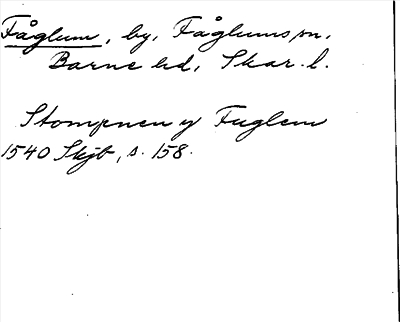 Fåglum, by, Fåglums sn,
Barne hd, Skar. l.
Stompnen y Fuglem
1540 Skjb, s. 158.